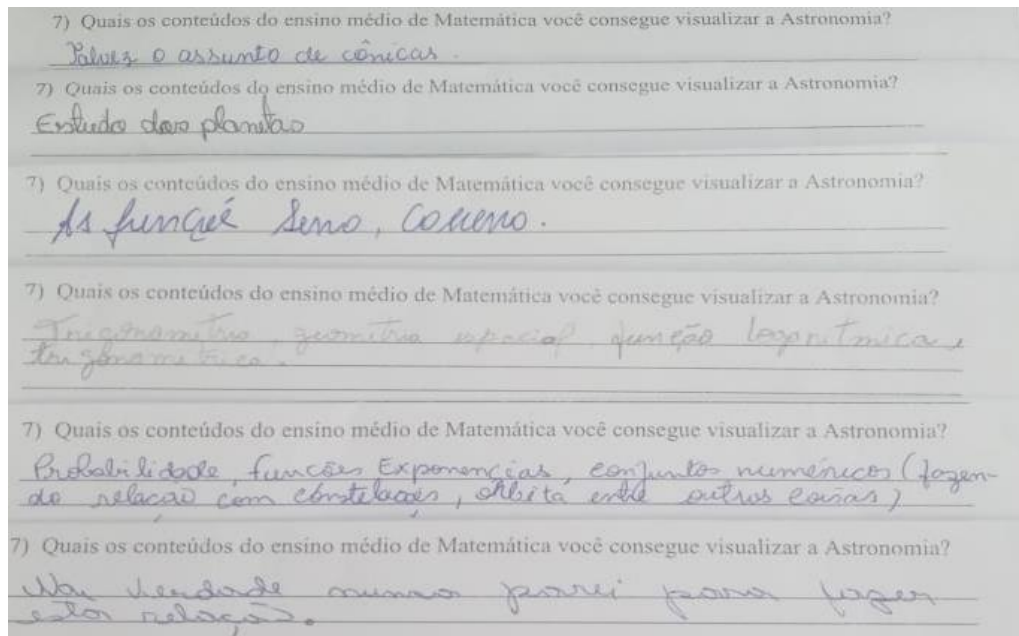 7) Quais os conteúdos do ensino médio de Matemática você consegue visualizar a Astronomia?
Talvez o assunto de cônicas.
7) Quais os conteúdos do ensino médio de Matemática você consegue visualizar a Astronomia?
Estudo dos planetas
7) Quais os conteúdos do ensino médio de Matemática você consegue visualizar a Astronomia?
As funções Seno, Cosseno.
7) Quais os conteúdos do ensino médio de Matemática você consegue visualizar a Astronomia?
Trigonometria, geometria espacial, função logaritmica e
trigonometrica.
7) Quais os conteúdos do ensino médio de Matemática você consegue visualizar a Astronomia?
Probabilidade, funções Exponencias, conjuntos numéricos (fazen-
do relação com constelações, órbita entre outras coisas)
7) Quais os conteúdos do ensino médio de Matemática você consegue visualizar a Astronomia?
Na verdade nunca parei para fazer
esta relação.